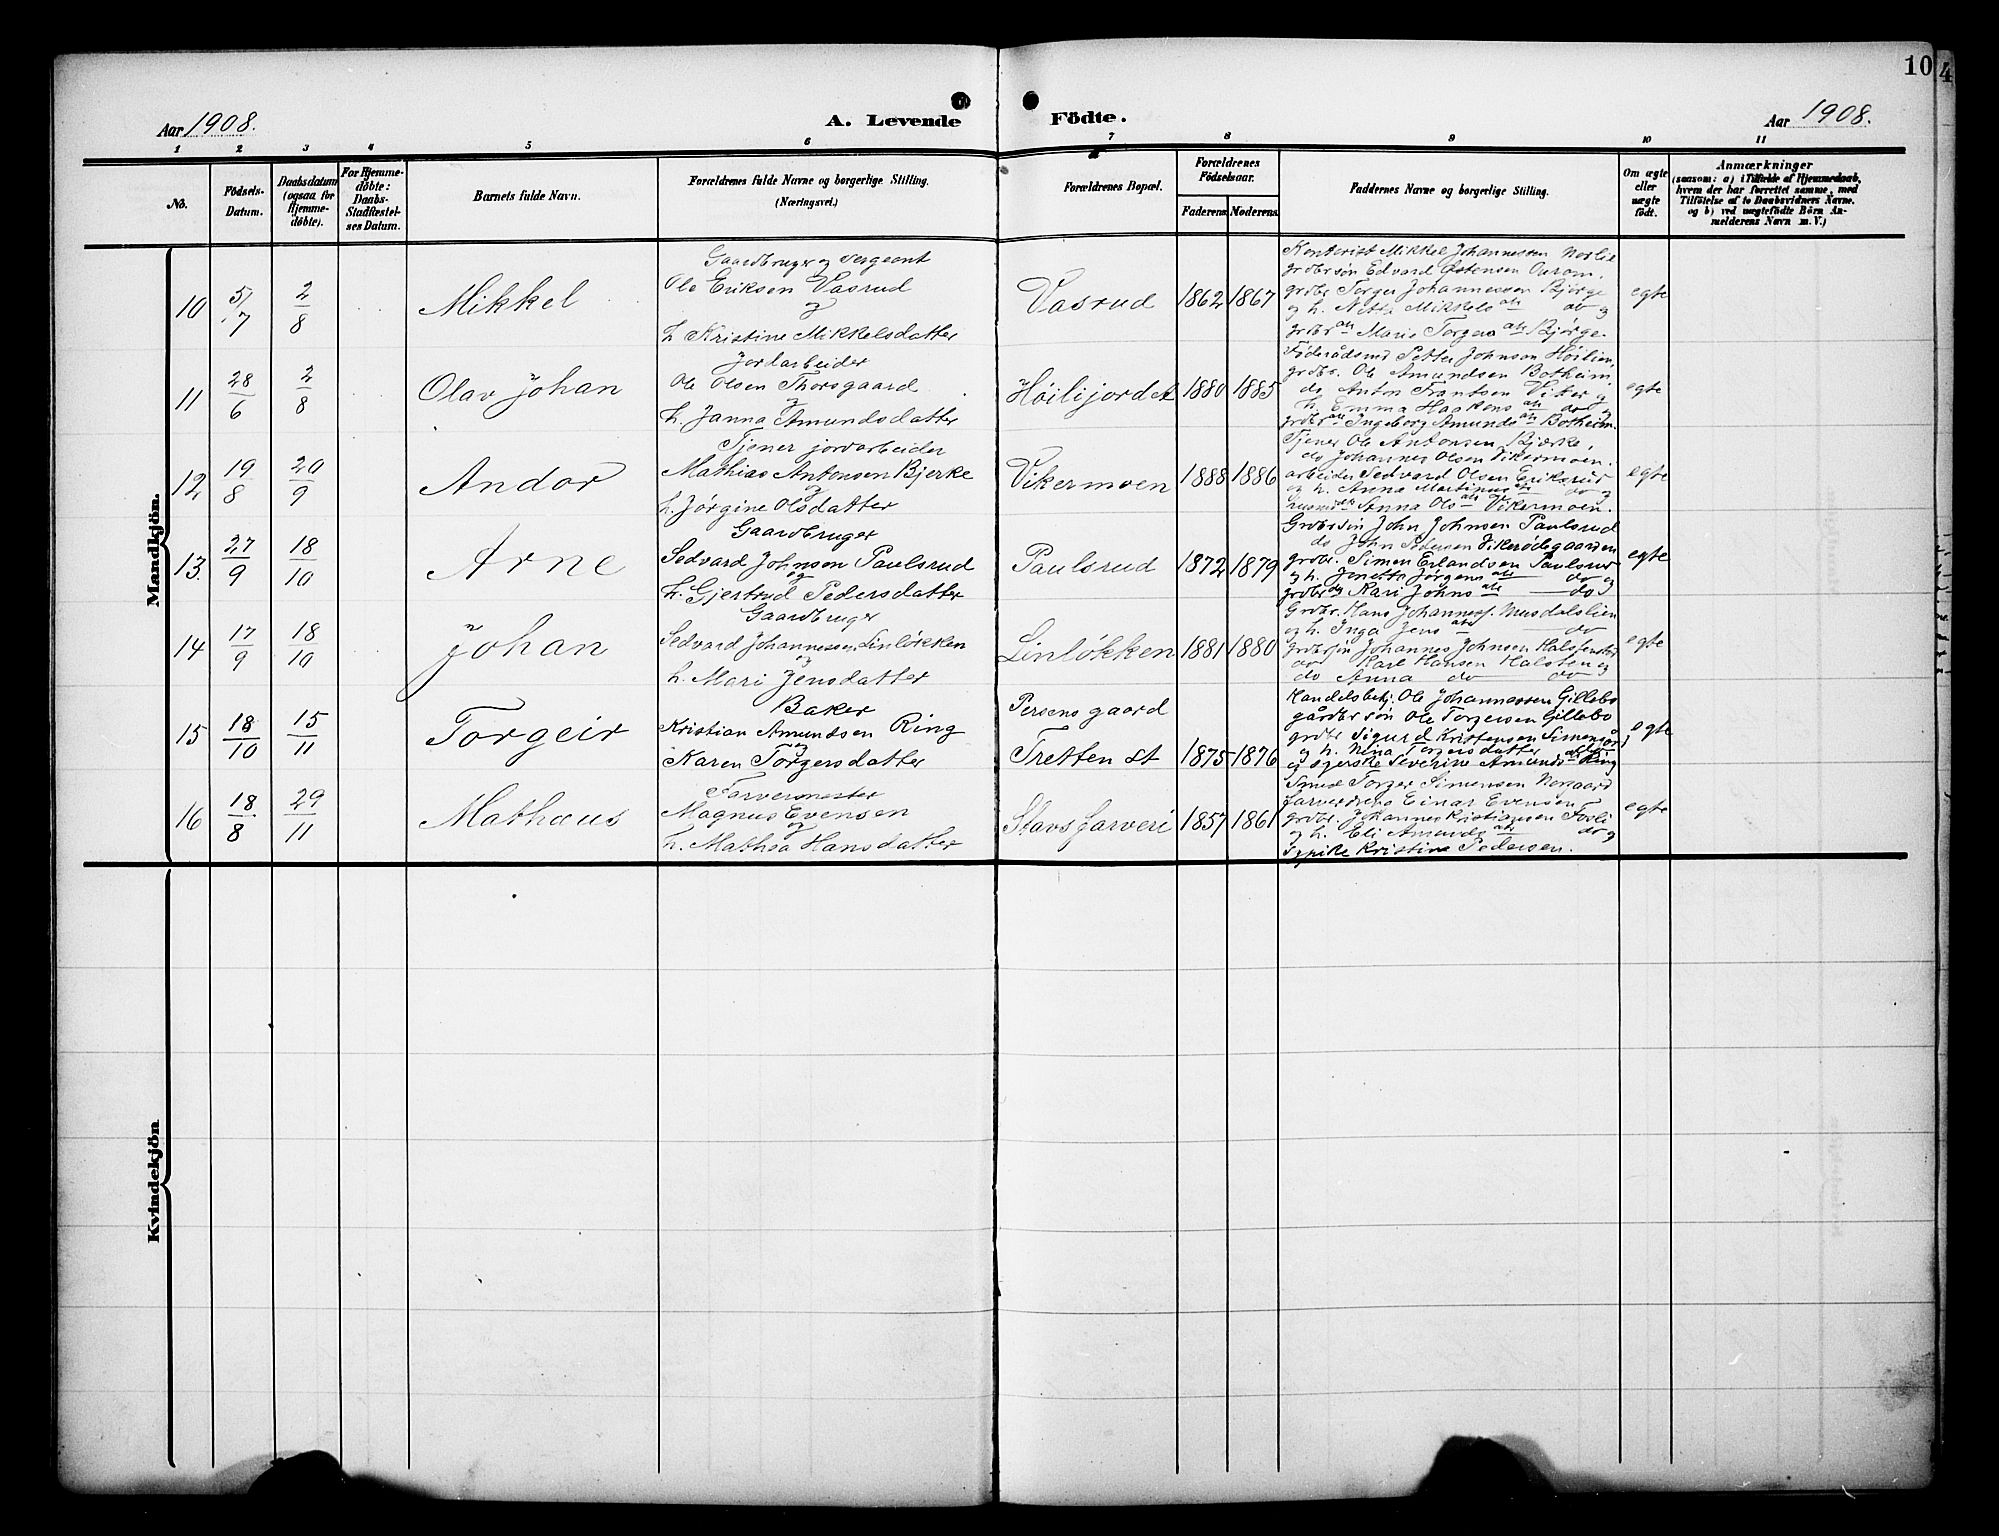 10
4
Aar 1908.
A. Levende Födte.
Aar 1908.
1 2 3 4 5 6 7 8 9 10 11
No.
Födsels-
Datum.
Daabsdatum
(ogsaa for
Hjemme-
döbte).
For Hjemme-
döbte:
Daabs-
Stadfæstel-
ses Datum.
Barnets fulde Navn.
Forældrenes fulde Navne og borgerlige Stilling.
(Næringsvei.)
Forældrenes Bopæl.
Forældrenes
Födselsaar.
Faderens. Moderens.
Faddernes Navne og borgerlige Stilling.
Om ægte
eller
uægte
födt.
Anmærkninger
(saasom: a) i Tilfælde af Hjemmedaab,
hvem der har forrettet samme, med
Tilföielse af to Daabsvidners Navne,
og b) ved uægtefödte Börn An-
melderens Navn m. V.)
Mandkjön.
10
5/7
2/8
Mikkel
Gaardbruger og sergeant
Ole Eriksen Vasrud
og
h. Kristine Mikkelsdatter
Vasrud
1862 1867
Kontorist Mikkel Johannessen Norlie
grdbr søn Edvard Østensen
grdbr Torger Johannessen Bjørge
og h. Netta Mikkelsdtr do og
grdbrdtr Marie Torgersdtr Bjørge.
egte
11
28/6
2/8
Olav Johan
Jordarbeider
Ole Olsen Thorsgaard
og
h. Janna Amundsdatter
Høilijordet
1880 1885
Føderådsmd Petter Johnsen Høilien
grdbr. Ole Amundsen Botheim,
do Anton Frantsen Viker og
h. Emma Haakensdtr do og
grdbrdtr Ingeborg Amundsdtr Botheim.
egte
12
19/8
20/9
Andor
Tjener jordarbeider
Mathias Antonsen Bjerke
og
h. Jørgine Olsdatter
Vikermoen
1888 1886
Tjener Ole Antonsen Bjerke,
do Johannes Olsen Vikermoen.
arbeider Sedvard Olsen Eriksrud
og h. Anna Martinusdtr do og
Anna Olsdtr Vikermoen.
egte
13.
27/9
18/10
Arne
Gaardbruger
Sedvard Johnsen Paulsrud
og
h. Gjertrud Pedersdatter
Paulsrud
1872 1879
Grdbr søn John Johnsen Paulsrud
do John Pedersen Vikerødegaarden
grdbr. Simen Erlandsen Paulsrud
og h. Jenette Jørgensdtr do og
grdbrdtr Kari Johnsdtr do
egte
14
17/9
18/10
Johan
Gaardbruger
Sedvard Johannessen Linløkken
og
h. Mari Jensdatter
Linløkken
1881 1880
Grdbr. Hans Johanness. Musdalslien
og h. Inga Jensdtr do
grdbrsøn Johannes Johnsen Halstenstad
do Karl Hansen Halsten og
do Anna do do
egte
15
18/10
15/11
Torgeir
Baker
Kristian Amundsen Ring
og
Karen Torgersdatter
Persens gaard
Tretten st
1875 1876
Handelsbetj. Ole Johannessen Gillebo
gårdbr søn Ole Torgersen Gillebo
grdbr Sigurd Kristensen
og h. Nina Torgersdatter
og syerske Severine Amundsdtr Ring
egte
16
18/8
29/11
Mathæus
Farvermester
Magnus Evensen
og
h. Mathea Hansdatter
Stavsfarveri
1857 1861
Smed Torger Simensen Norgaard
farverdreng Einar Evensen
grdbr. Johannes Kristiansen Fosli
og h. Eli Amundsdtr do og
Kristine Pedersen.
egte
Kvindekjön